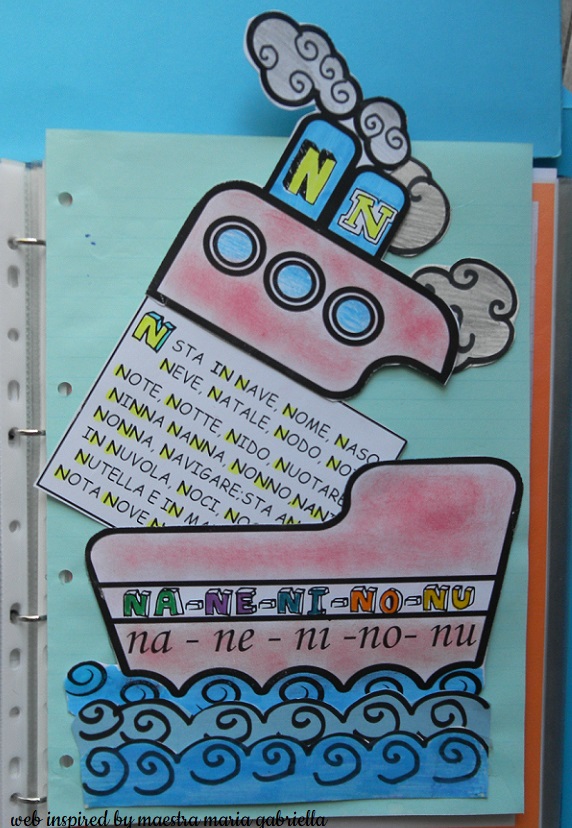 N N
N STA IN NAVE, NOME, NASO
NEVE, NATALE, NODO,
NOTE, NOTTE, NIDO, NUOTARE
NINNA NANNA, NONNO
NONNA, NAVIGARE.STA
IN NUVOLA, NOCI,
NUTELLA E IN
NOTA NOVE
NA-NE-NI-NO-NU
na - ne - ni -no- nu
web inspired by maestra maria gabriella